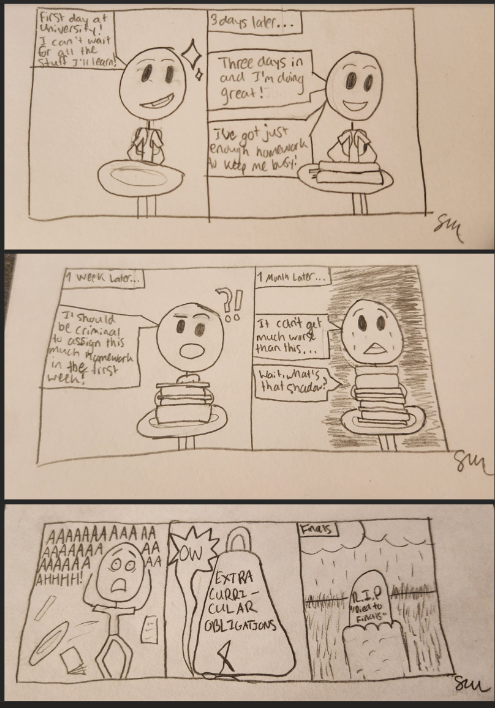 First day at
University!
I can't wait
for all the
stuff I'll learn!
3 days later...
Three days in
and I'm doing
great!
I've got just
enough homework
to keep me busy!
1 Week Later...
?!
It should
be criminal
to assign this
much homework
in the first
week!
1 Month Later...
It can't get
much worse
than this...
Wait, what's
that shadow?
AAAAAAAAAAA AA
AAAAAAA AA
AAAAAA AA
AHHHH!
OW
EXTRA
CURRI-
CULAR
OBLIGATIONS
Finals
R.I.P
"Died to
Finals"